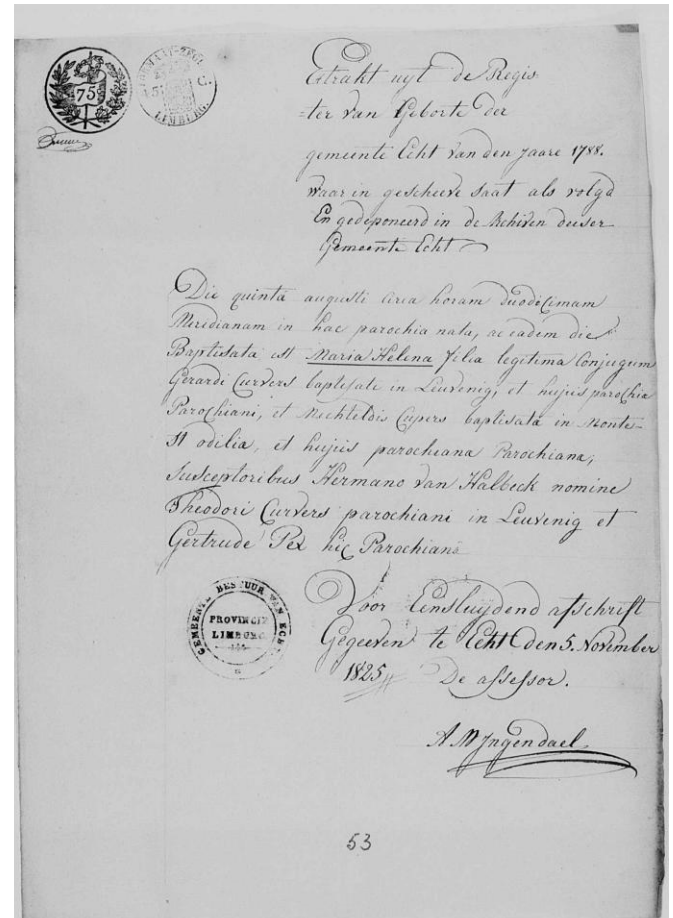 75
LIMBURG.
C.
Extrakt uyt de Regis
=ter van Geborte der
gemeente Echt van den jaare 1788.
waar in gescheeve staat als volgd
En gedeponeerd in de Achiven deeser
Gemeente Echt
Die quinta augusti circa horam duodecimam
Meridianam in hac parochia nata, ac eadem die
Baptisata est Maria Helena filia legitima Conjugum
Gerardi Curvers baptisate in Leuvenig, et hujus parochia
Parochiani, et Mechteldis Cupers baptisata in Monte-
St odilia, et hujus parocheana Parochiana,
Susceptoribus Hermano van Halbeck nomine
Theodori Curvers parochiani in Leuvenig et
Gertrude Pex hic Parochiana
GEMEENTE BESTUUR VAN ECHT
PROVINCIE
LIMBURG
Voor Eensluijdend afschrift
Gegeeven te Echt den 5. November
1825 De assessor.
A M Jngendael
53